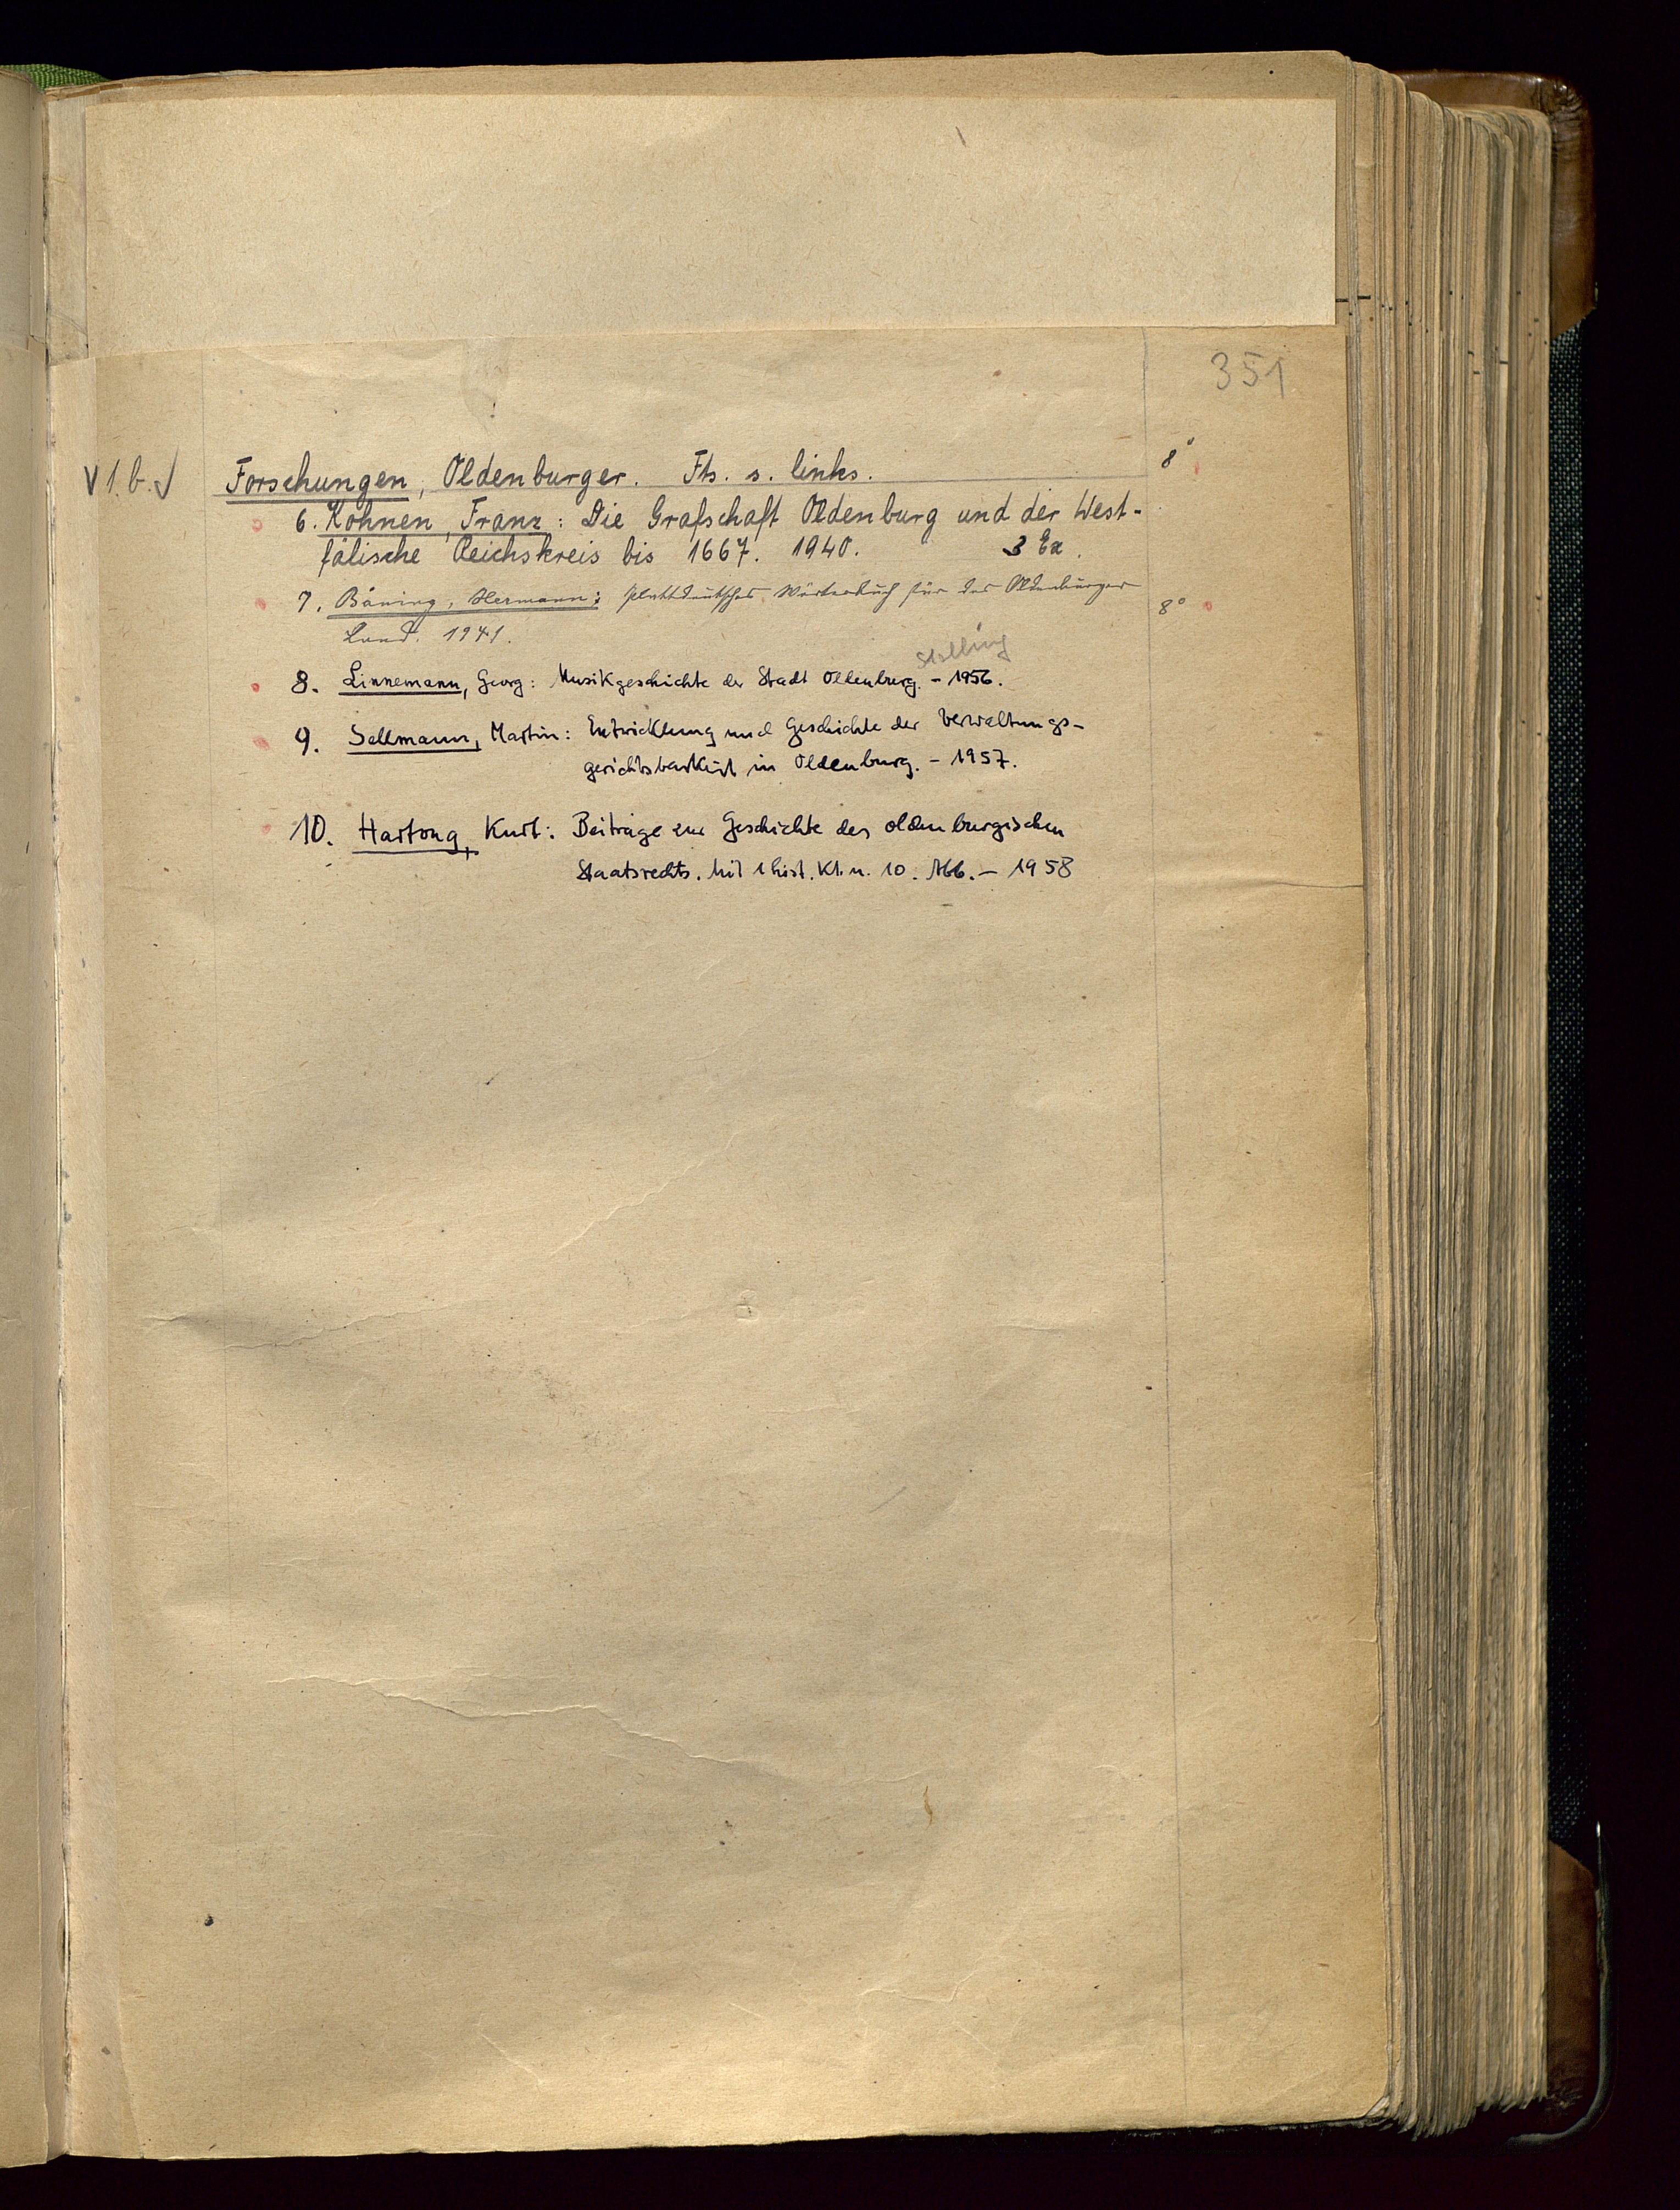 351
V 1. b. √ Forschungen, Oldenburger. Fts. s. links. 8°
6. Kohnen, Franz: Die Grafschaft Oldenburg und der West-
fälische Reichskreis bis 1667. 1940. 3 Ex.
7. Böning, Hermann: Plattdeutsches Wörterbuch für das Oldenburger 8°
Land. 1941.
Stalling
8. Linnemann, Georg: Musikgeschichte der Stadt Oldenburg. - 1956.
9. Sellmann, Martin: Entwicklung und Geschichte der Verwaltungs-
gerichtsbarkeit in Oldenburg. - 1957.
10. Hartong, Kurt: Beiträge zur Geschichte des oldenburgischen
Staatsrechts. Mit 1 hist. Kt. u. 10. Abb. - 1958